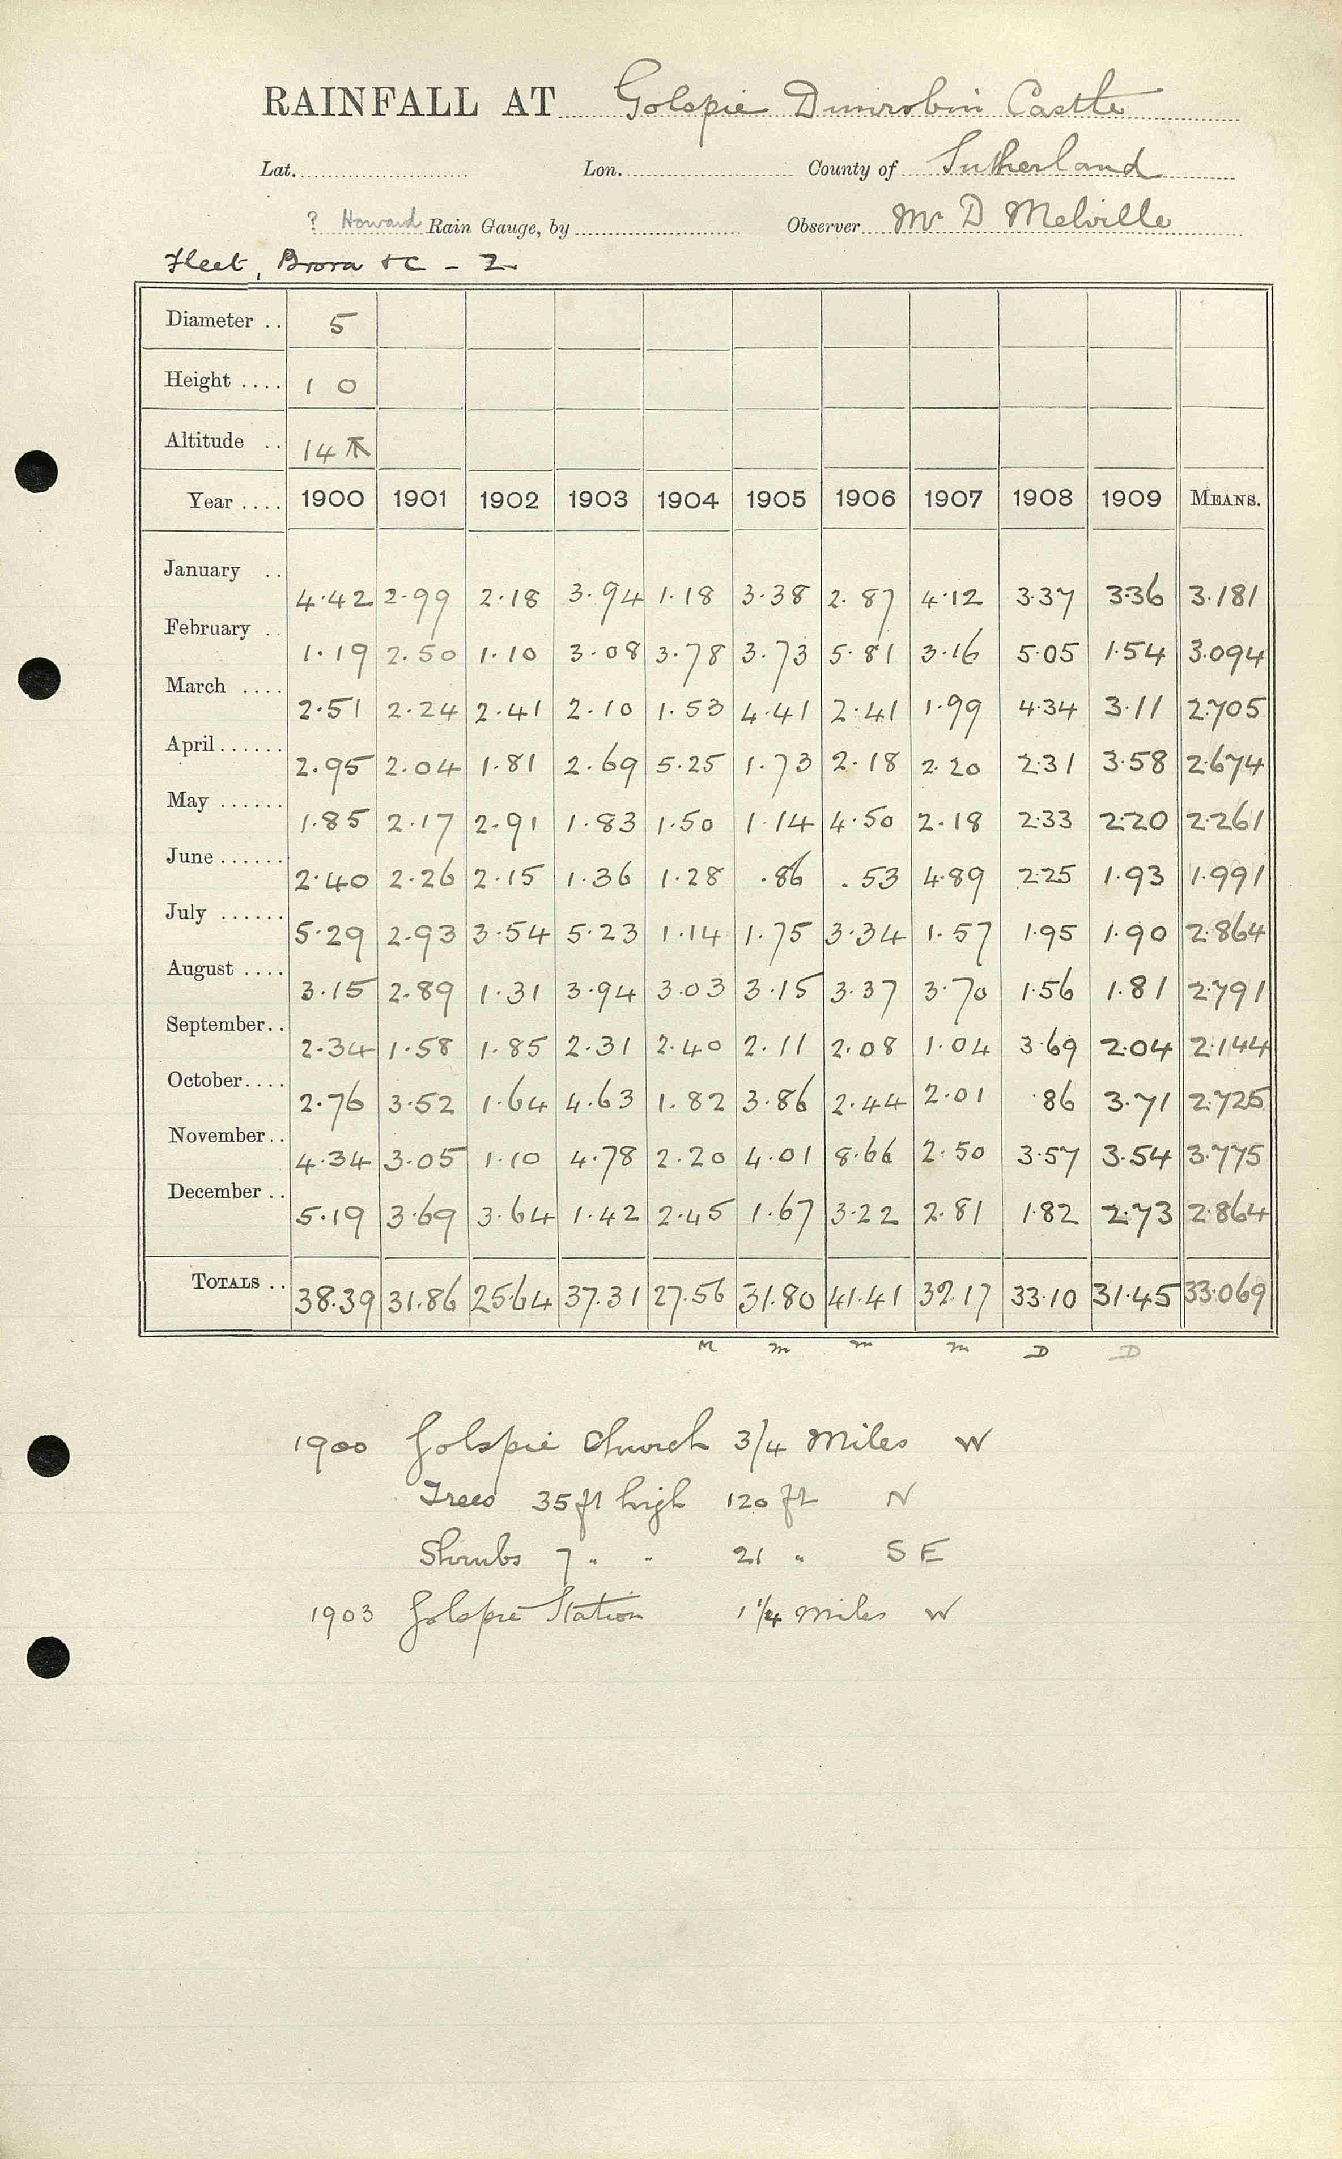 RAINFALL AT Golspie Dunrobin Castle
Lat. Lon. County of Sutherland
? Howard Rain Gauge, by Observer Mr D Melville
Fleet, Brora &c - 2
Diameter .. 5
Height .... 1 0
Altitude .. 14
Year .... 1900 1901 1902 1903 1904 1905 1906 1907 1908 1909 MEANS.
January .. 4.42 2.99 2.18 3.94 1.18 3.38 2.87 4.12 3.37 3.36 3.181
February .. 1.19 2.50 1.10 3.08 3.78 3.73 5.81 3.16 5.05 1.54 3.094
March .... 2.51 2.24 2.41 2.10 1.53 4.41 2.41 1.99 4.34 3.11 2.705
April ...... 2.95 2.04 1.81 2.69 5.25 1.73 2.18 2.20 2.31 3.58 2.674
May ...... 1.85 2.17 2.91 1.83 1.50 1.14 4.50 2.18 2.33 2.20 2.261
June ...... 2.40 2.26 2.15 1.36 1.28 .86 .53 4.89 2.25 1.93 1.991
July ...... 5.29 2.93 3.54 5.23 1.14 1.75 3.34 1.57 1.95 1.90 2.864
August .... 3.15 2.89 1.31 3.94 3.03 3.15 3.37 3.70 1.56 1.81 2.791
September .. 2.34 1.58 1.85 2.31 2.40 2.11 2.08 1.04 3.69 2.04 2.144
October .... 2.76 3.52 1.64 4.63 1.82 3.86 2.44 2.01 .86 3.71 2.725
November .. 4.34 3.05 1.10 4.78 2.20 4.01 8.66 2.50 3.57 3.54 3.775
December .. 5.19 3.69 3.64 1.42 2.45 1.67 3.22 2.81 1.82 2.73 2.864
TOTALS .. 38.39 31.86 25.64 37.31 27.56 31.80 41.41 32.17 33.10 31.45 33.069
M m m m D D
1900 Golspie Church 3/4 Miles W
Trees 35 ft high 120 ft N
Shrubs 7 " " 21 " S E
1903 Golspie Station 1 1/4 miles W